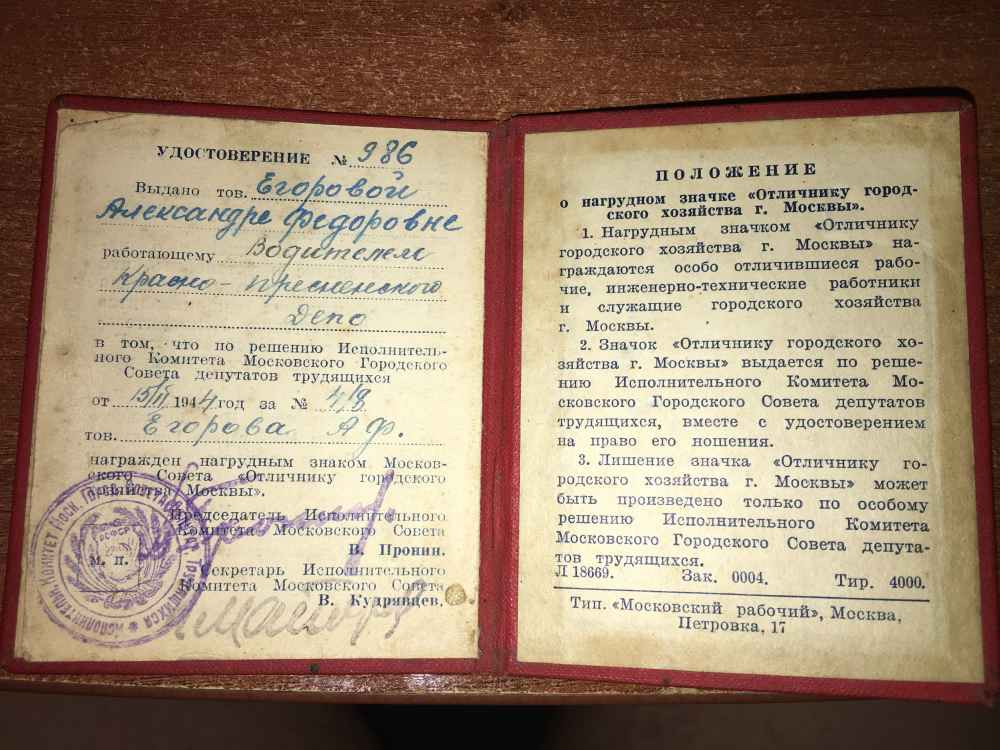 УДОСТОВЕРЕНИЕ № 986
Выдано тов. Егоровой
Александре Федоровне
работающему Водителем
Красно-пресненского
Депо
в том, что по решению Исполнитель-
ного Комитета Московского Городского
Совета депутатов трудящихся
от 15/II 1944 год за № 4/8
тов. Егорова А.Ф.
награжден нагрудным знаком Москов-
ского Совета «Отличнику городского
хозяйства Москвы».
Председатель Исполнительного
Комитета Московского Совета
В. Пронин.
М. П.
Секретарь Исполнительного
Комитета Московского Совета
В. Кудрявцев.
ПОЛОЖЕНИЕ
о нагрудном значке «Отличнику город-
ского хозяйства г. Москвы».
1. Нагрудным значком «Отличнику
городского хозяйства г. Москвы» на-
граждаются особо отличившиеся рабо-
чие, инженерно-технические работники
и служащие городского хозяйства
г. Москвы.
2. Значок «Отличнику городского хо-
зяйства г. Москвы» выдается по реше-
нию Исполнительного Комитета Мо-
сковского Городского Совета депутатов
трудящихся, вместе с удостоверением
на право его ношения.
3. Лишение значка «Отличнику го-
родского хозяйства г. Москвы» может
быть произведено только по особому
решению Исполнительного Комитета
Московского Городского Совета депута-
тов трудящихся.
Л 18669. Зак. 0004. Тир. 4000.
Тип. «Московский рабочий», Москва,
Петровка, 17